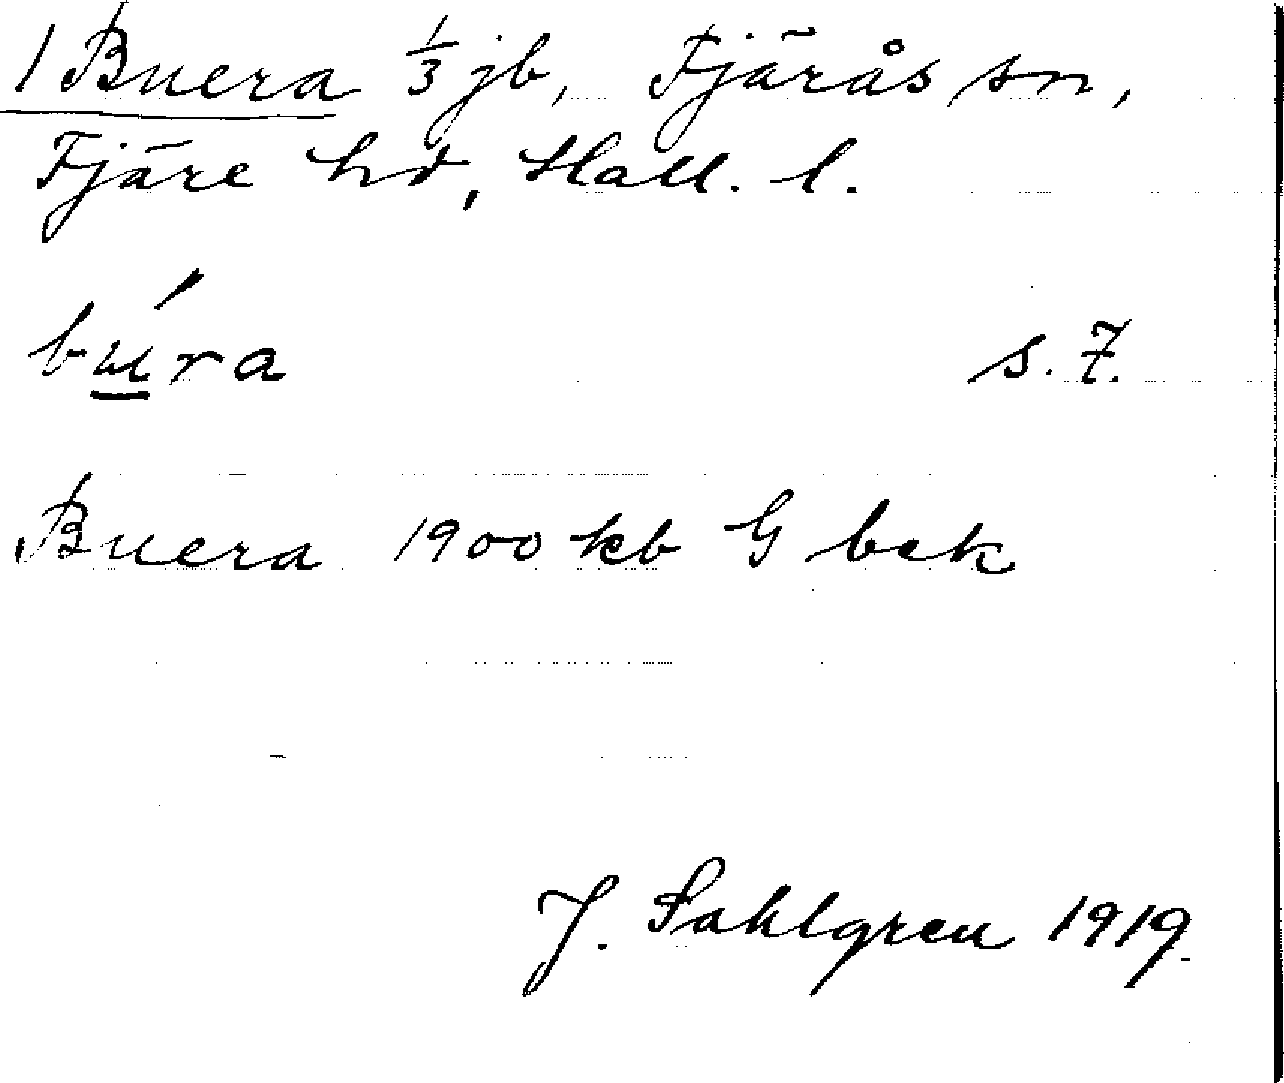 1 Buera 1/3 jb, Fjärås sn,
Fjäre hd, Hall. l.
bú̲ra s. 7.
Buera 1900 kb G bek
J. Sahlgren 1919.